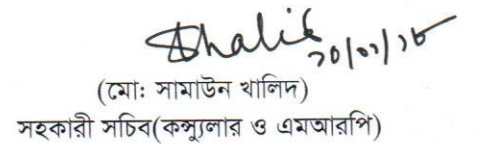 Khalid ২০/০১/১৮
(মো: সামাউন খালিদ)
সহকারী সচিব(কন্স্যুলার ও এমআরপি)